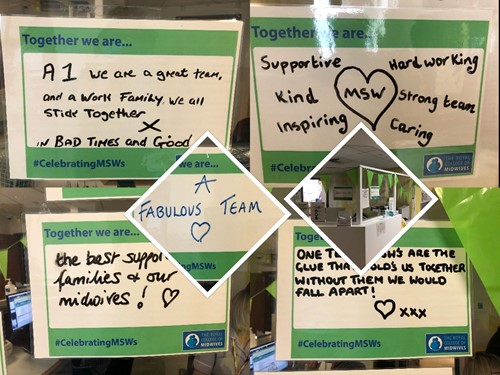 Together we are...
A1 we are a great team,
and a Work Family. We all
stick Together
X
in Bad Times and Good
#CelebratingMSWs
Together we are...
Supportive
Hard working
Kind
MSW
Strong team
Inspiring
Caring
#CelebratingMSWs
THE ROYAL
COLLEGE OF
MIDWIVES
we are...
A
FABULOUS TEAM
MSWs
Together we are...
the best
families & our
midwives!
#CelebratingMSWs
THE ROYAL
COLLEGE OF
MIDWIVES
Together we are...
ONE ARE THE
GLUE US TOGETHER
WITHOUT THEM WE WOULD
FALL APART!
xxx
#CelebratingMSWs
THE ROYAL
COLLEGE OF
MIDWIVES